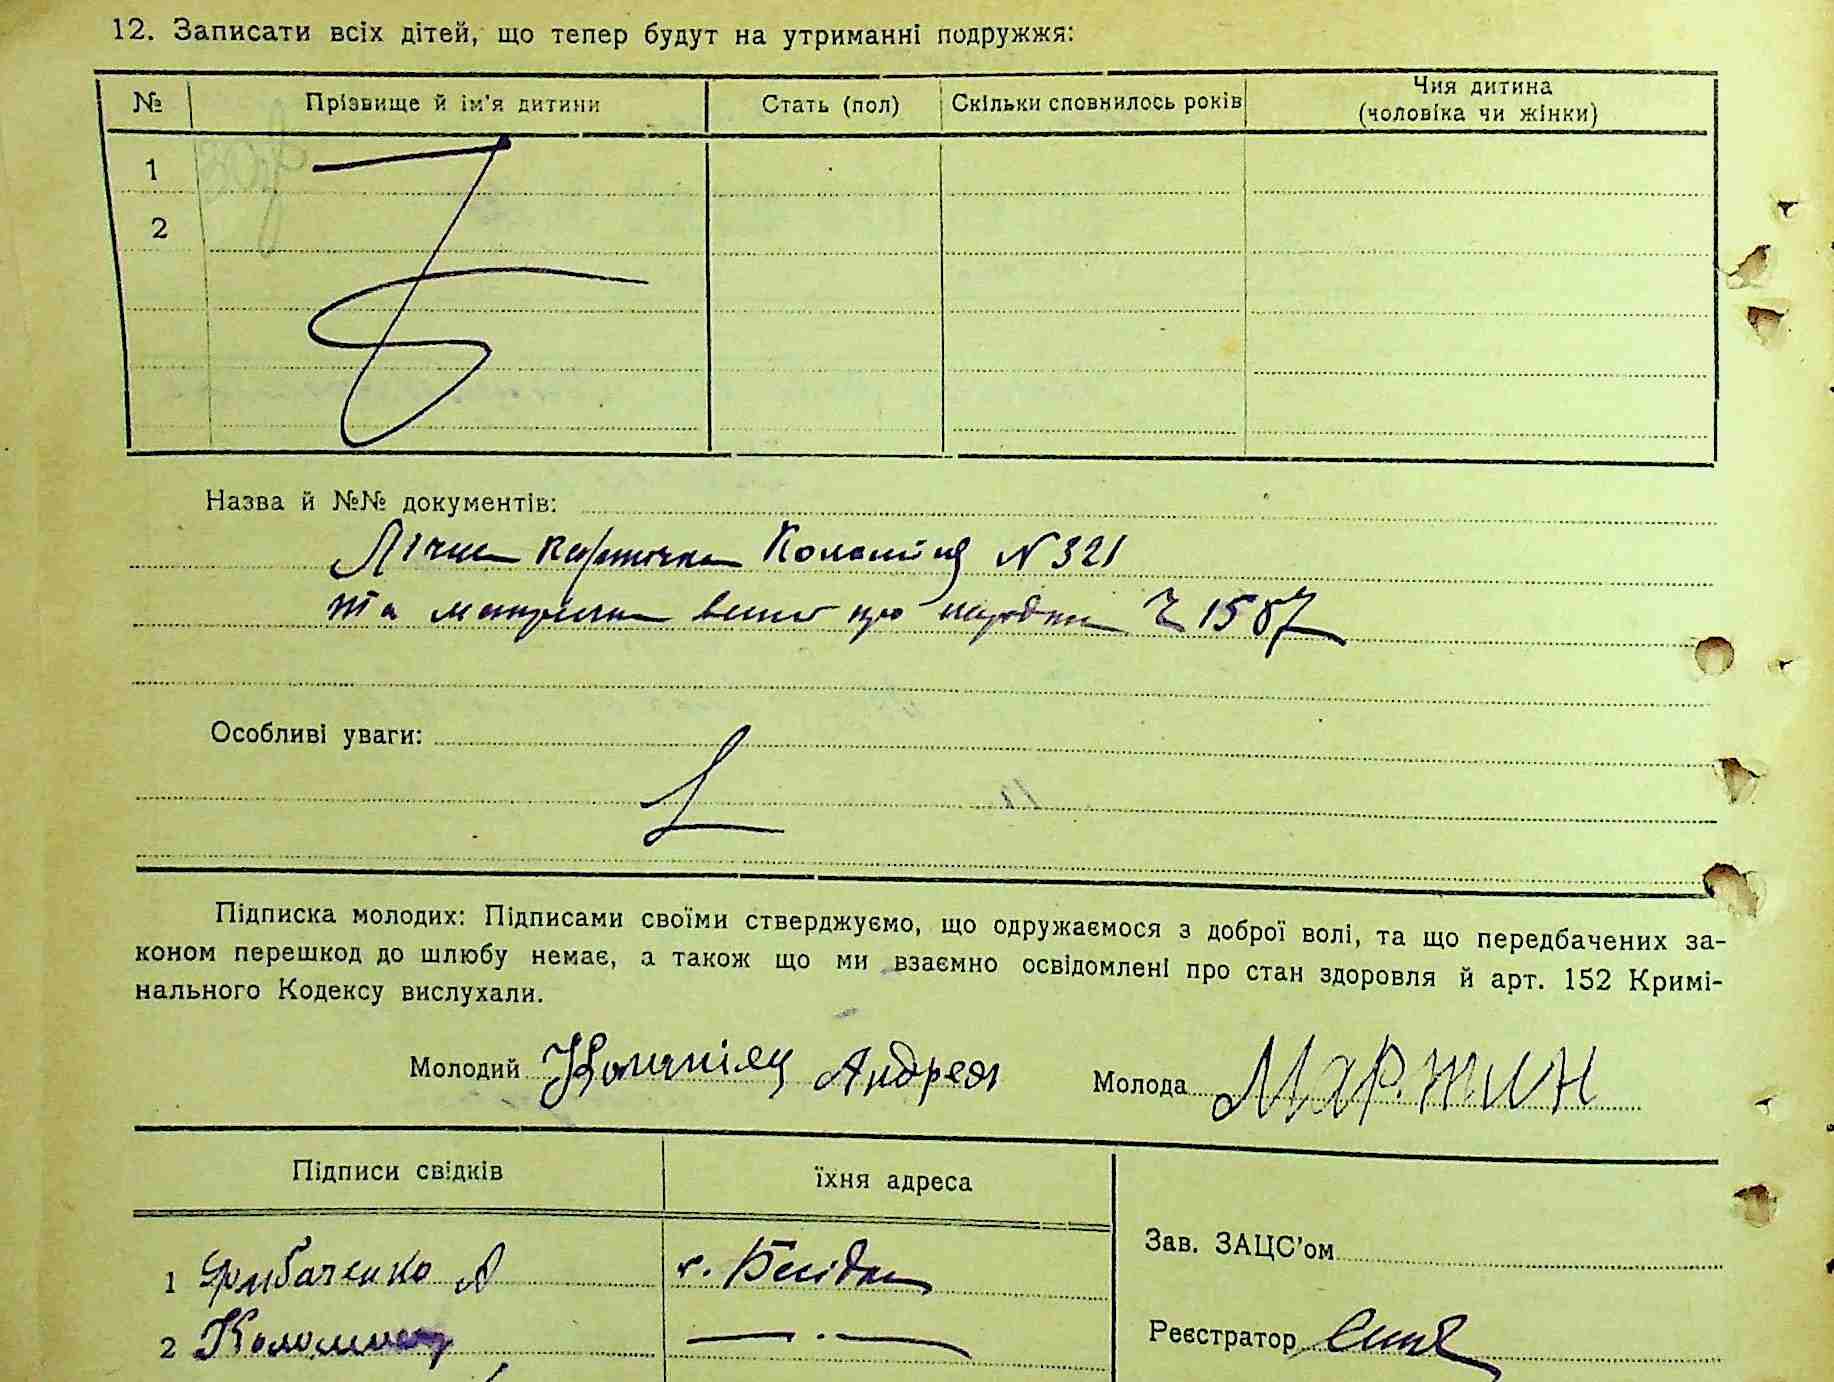 12. Записати всіх дітей, що тепер будут на утриманні подружжя:
№ Прізвище й ім'я дитини Стать (пол) Скільки сповнилось років Чия дитина
(чоловіка чи жінки)
1
2
Назва й №№ документів:
Лічна карточка Коломійця N 321
та метрична про народж Ч 1587
Особливі уваги:
Підписка молодих: Підписами своїми стверджуємо, що одружаємося з доброї волі, та що передбачених за-
коном перешкод до шлюбу немає, а також що ми взаємно освідомлені про стан здоровля й арт. 152 Кримі-
нального Кодексу вислухали.
Молодий Коломієц Андрей Молода Мартин
Підписи свідків їхня адреса
Зав. ЗАЦС'ом
1 с. Бесідка
2 Коломиец
Реєстратор